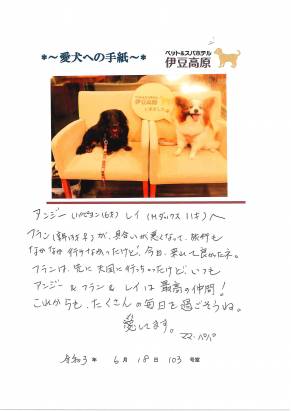 *～愛犬への手紙～*
ペット&スパホテル
伊豆高原
伊豆高原
アンジー (パピヨン16才) レイ (Mダックス11才) へ
フラン が、具合いが悪くなって、旅行も
なかなか行けなかったけど、今日、来れて良かったネ。
フランは、先に天国に行っちゃったけど、いつも
アンジー & フラン & レイは最高の仲間!
これからも、たくさんの毎日を過ごそうね。
愛してます。
ママ・パパ
令和3年 6月18日 103号室